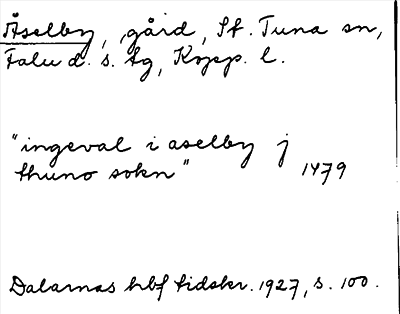 Åselby, gård, St. Tuna sn,
Falu d. s. tg, Kopp. l.
"ingeval i aselby j
thuno sokn" 1479
Dalarnas hbf tidskr. 1927, s. 100.